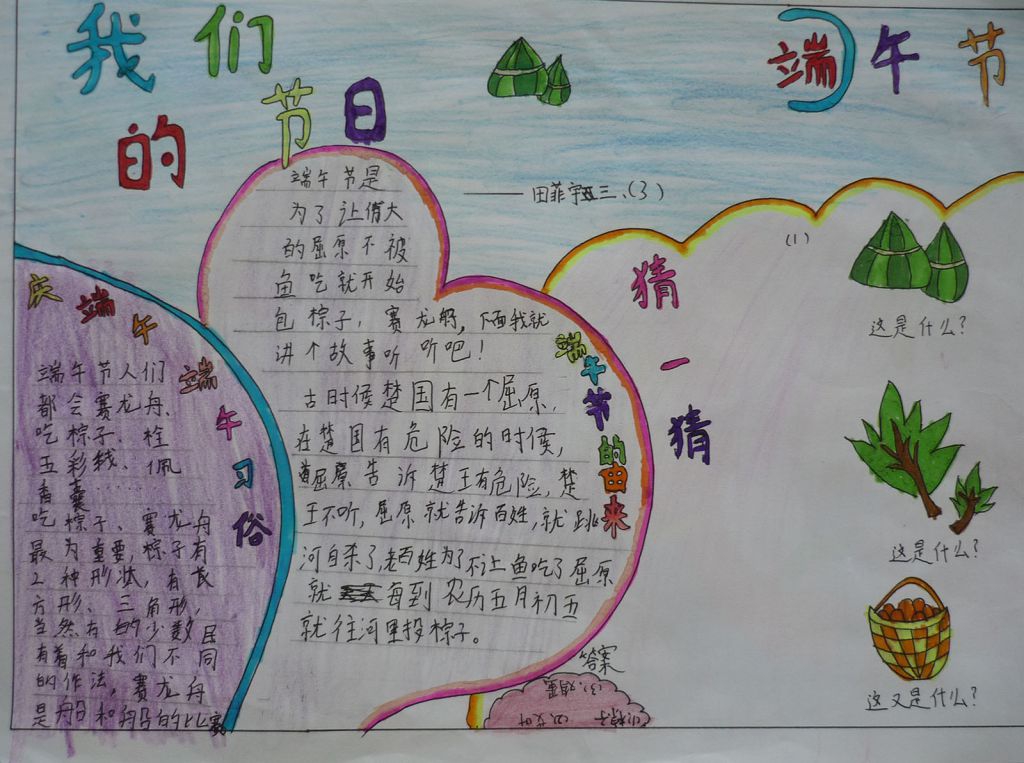 我们
的节日
端午节
——田菲宇三、(3)
庆端午
端午习俗
端午节人们
都会赛龙舟、
吃棕子、栓
五彩线、佩
香囊……
吃棕子、赛龙舟
最为重要,棕子有
2种形状,有长
方形、三角形,
当然有的少数民
有着和我们不同
的作法,赛龙舟
是船和船的比赛
端午节是
为了让伟大
的屈原不被
鱼吃就开始
包棕子,赛龙舟,下面我就
讲个故事听听吧!
古时候楚国有一个屈原,
在楚国有危险的时候,
屈原告诉楚王有危险,楚
王不听,屈原就告诉百姓,就跳
河自杀了,老百姓为了不让鱼吃了屈原
就每到农历五月初五
就往河里投棕子。
端午节的由来
猜一猜
(1)
这是什么?
这是什么?
这又是什么?
答案
(3)、鸡蛋
(1)棕子 (2)艾叶